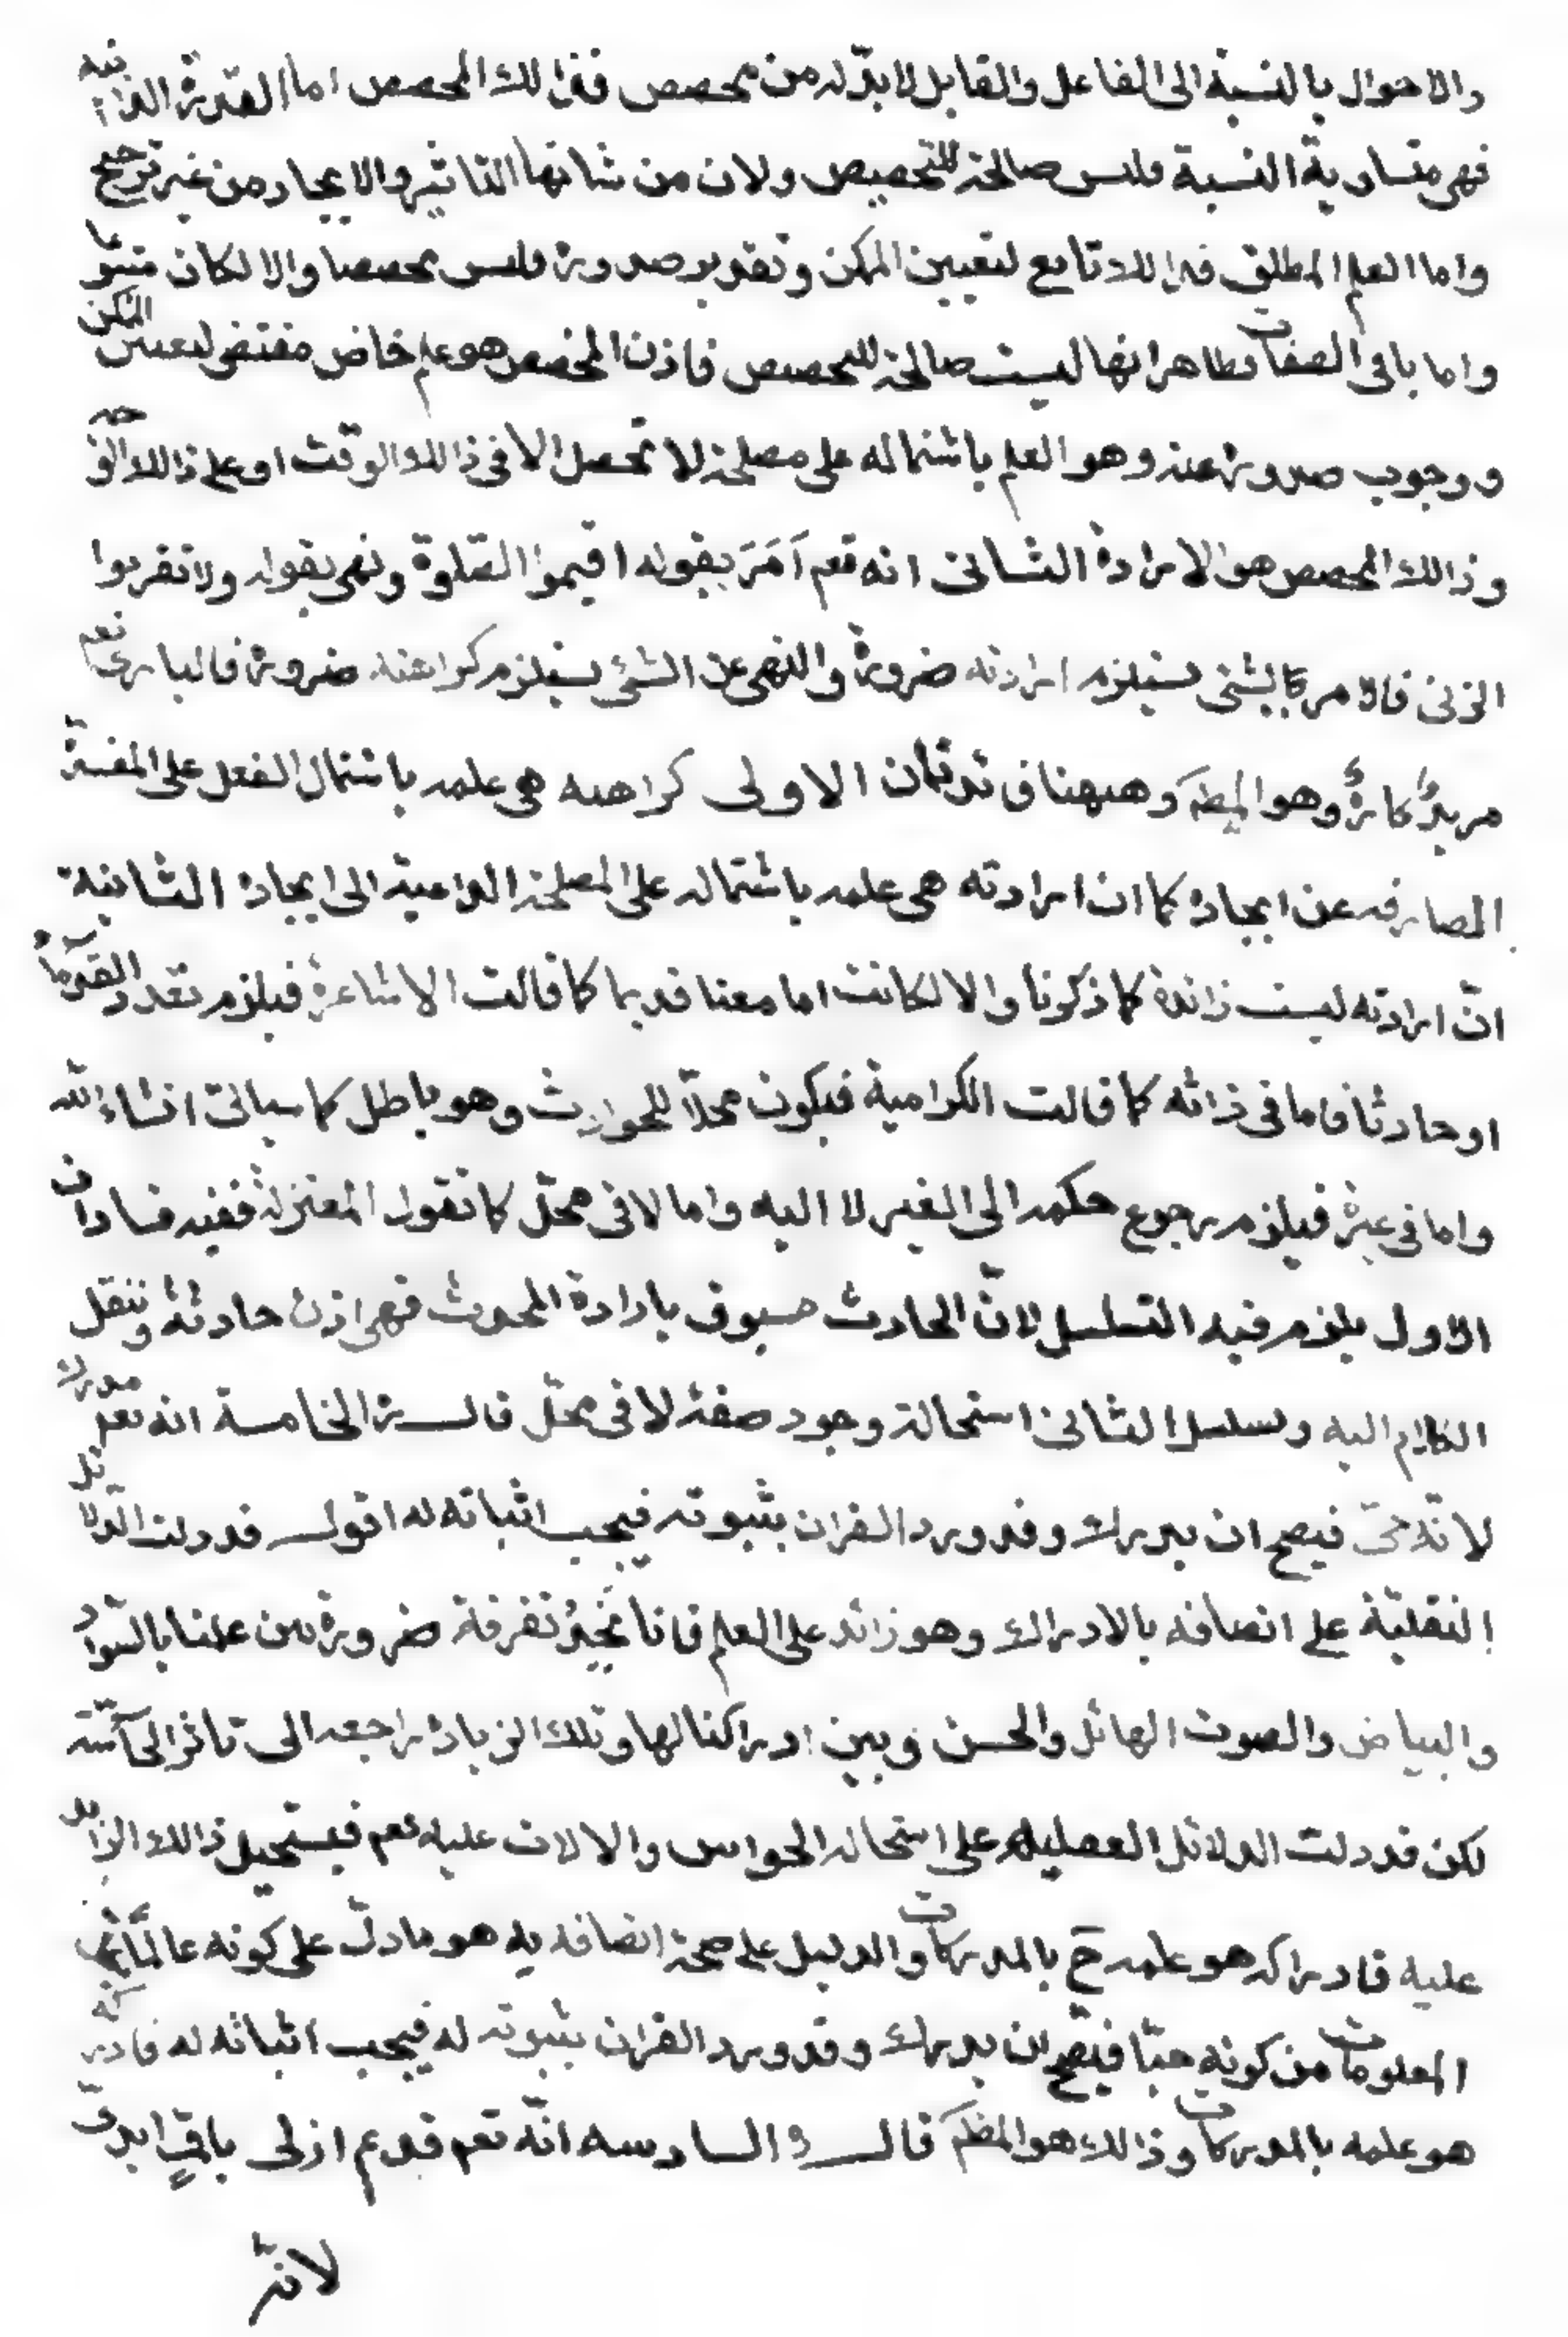 والاحوال بالنسبة الى الفاعل والقابل لا بدّ له من مخصص فذلك المخصص اما القدرة الذاتية
فهى متساوية النسبة فليس صالحة للتخصيص ولان من شانها التاثير والايجاد من غير ترجيح
واما العلم المطلق فذالك تابع لتعيين الممكن وتقدير صدوره فليس مخصصا والا لكان متبوعا
واما باقى الصفات فظاهر انها ليست صالحة للتخصيص فاذن المخصص هو علم خاص مقتضى لتعيين الممكن
ووجوب صدوره عنه وهو العلم باشتماله على مصلحة لا تحصل الا فى ذالك الوقت او على ذالك الوجه
وذالك المخصص هو الارادة الثانى انه تعم اَمَرَ بقوله اقيموا الصّلوة ونهى بقوله ولا تقربوا
الزنى فالامر بالشئ يستلزم ارادته ضرورة والنهى عن الشئ يستلزم كراهته ضرورة فالبارى تعم
مريدٌ كارهٌ وهو المط وههنا فائدتان الاولى كراهيته هى علمه باشتمال الفعل على المفسدة
الصارفه عن ايجاده كما ان ارادته هى علمه باشتماله على المصلحة الداعية الى ايجاده الثانية
انّ ارادته ليست زائدة كما ذكرنا والا لكانت اما معنا قديما كما قالت الاشاعرة فيلزم تعدد القدماء
او حادثا فاما فى ذاته كما قالت الكرامية فيكون محلاّ للحوادث وهو باطل كما سياتى انشاء الله
واما فى غيره فيلزم رجوع حكمه الى الغير لا اليه واما لا فى محلّ كما تقول المعتزلة ففيه فسادان
الاول يلزم فيه التسلسل لانّ الحادث مسبوق بارادة المحدث فهى اذن حادثة وننقل
الكلام اليه وتسلسل الثانى استحالة وجود صفة لا فى محلّ قال ره الخامسة انه تعم مدرك
لانّه حىّ فيصح ان يدرك وقد ورد القران بثبوته فيجب اثباته له اقول قد دلت الدلائل
النقليّة على اتصافه بالادراك وهو زائد على العلم فانا نجد تفرقة ضرورة بين علمنا بالسّواد
والبياض والصوت الهائل والحسن وبين ادراكنا لها وتلك الزيادة راجعه الى تاثر الحاسّة
لكن قد دلت الدلائل العقليه على استحاله الحواس والالات عليه تعم فيستحيل ذالك الزايد
عليه فادراكه هو علمه ح بالمدركات والدليل على صحة اتصافه به هو ما دلّ على كونه عالمًا بكل
المعلومات من كونه حيّا فيصحّ ان يدرك وقد ورد القران بثبوته له فيجب اثباته له فادراكه
هو علمه بالمدركات وذالك هو المط قال ره السادسه انّه تعم قديم ازلى باقٍ ابدىّ
لانّه